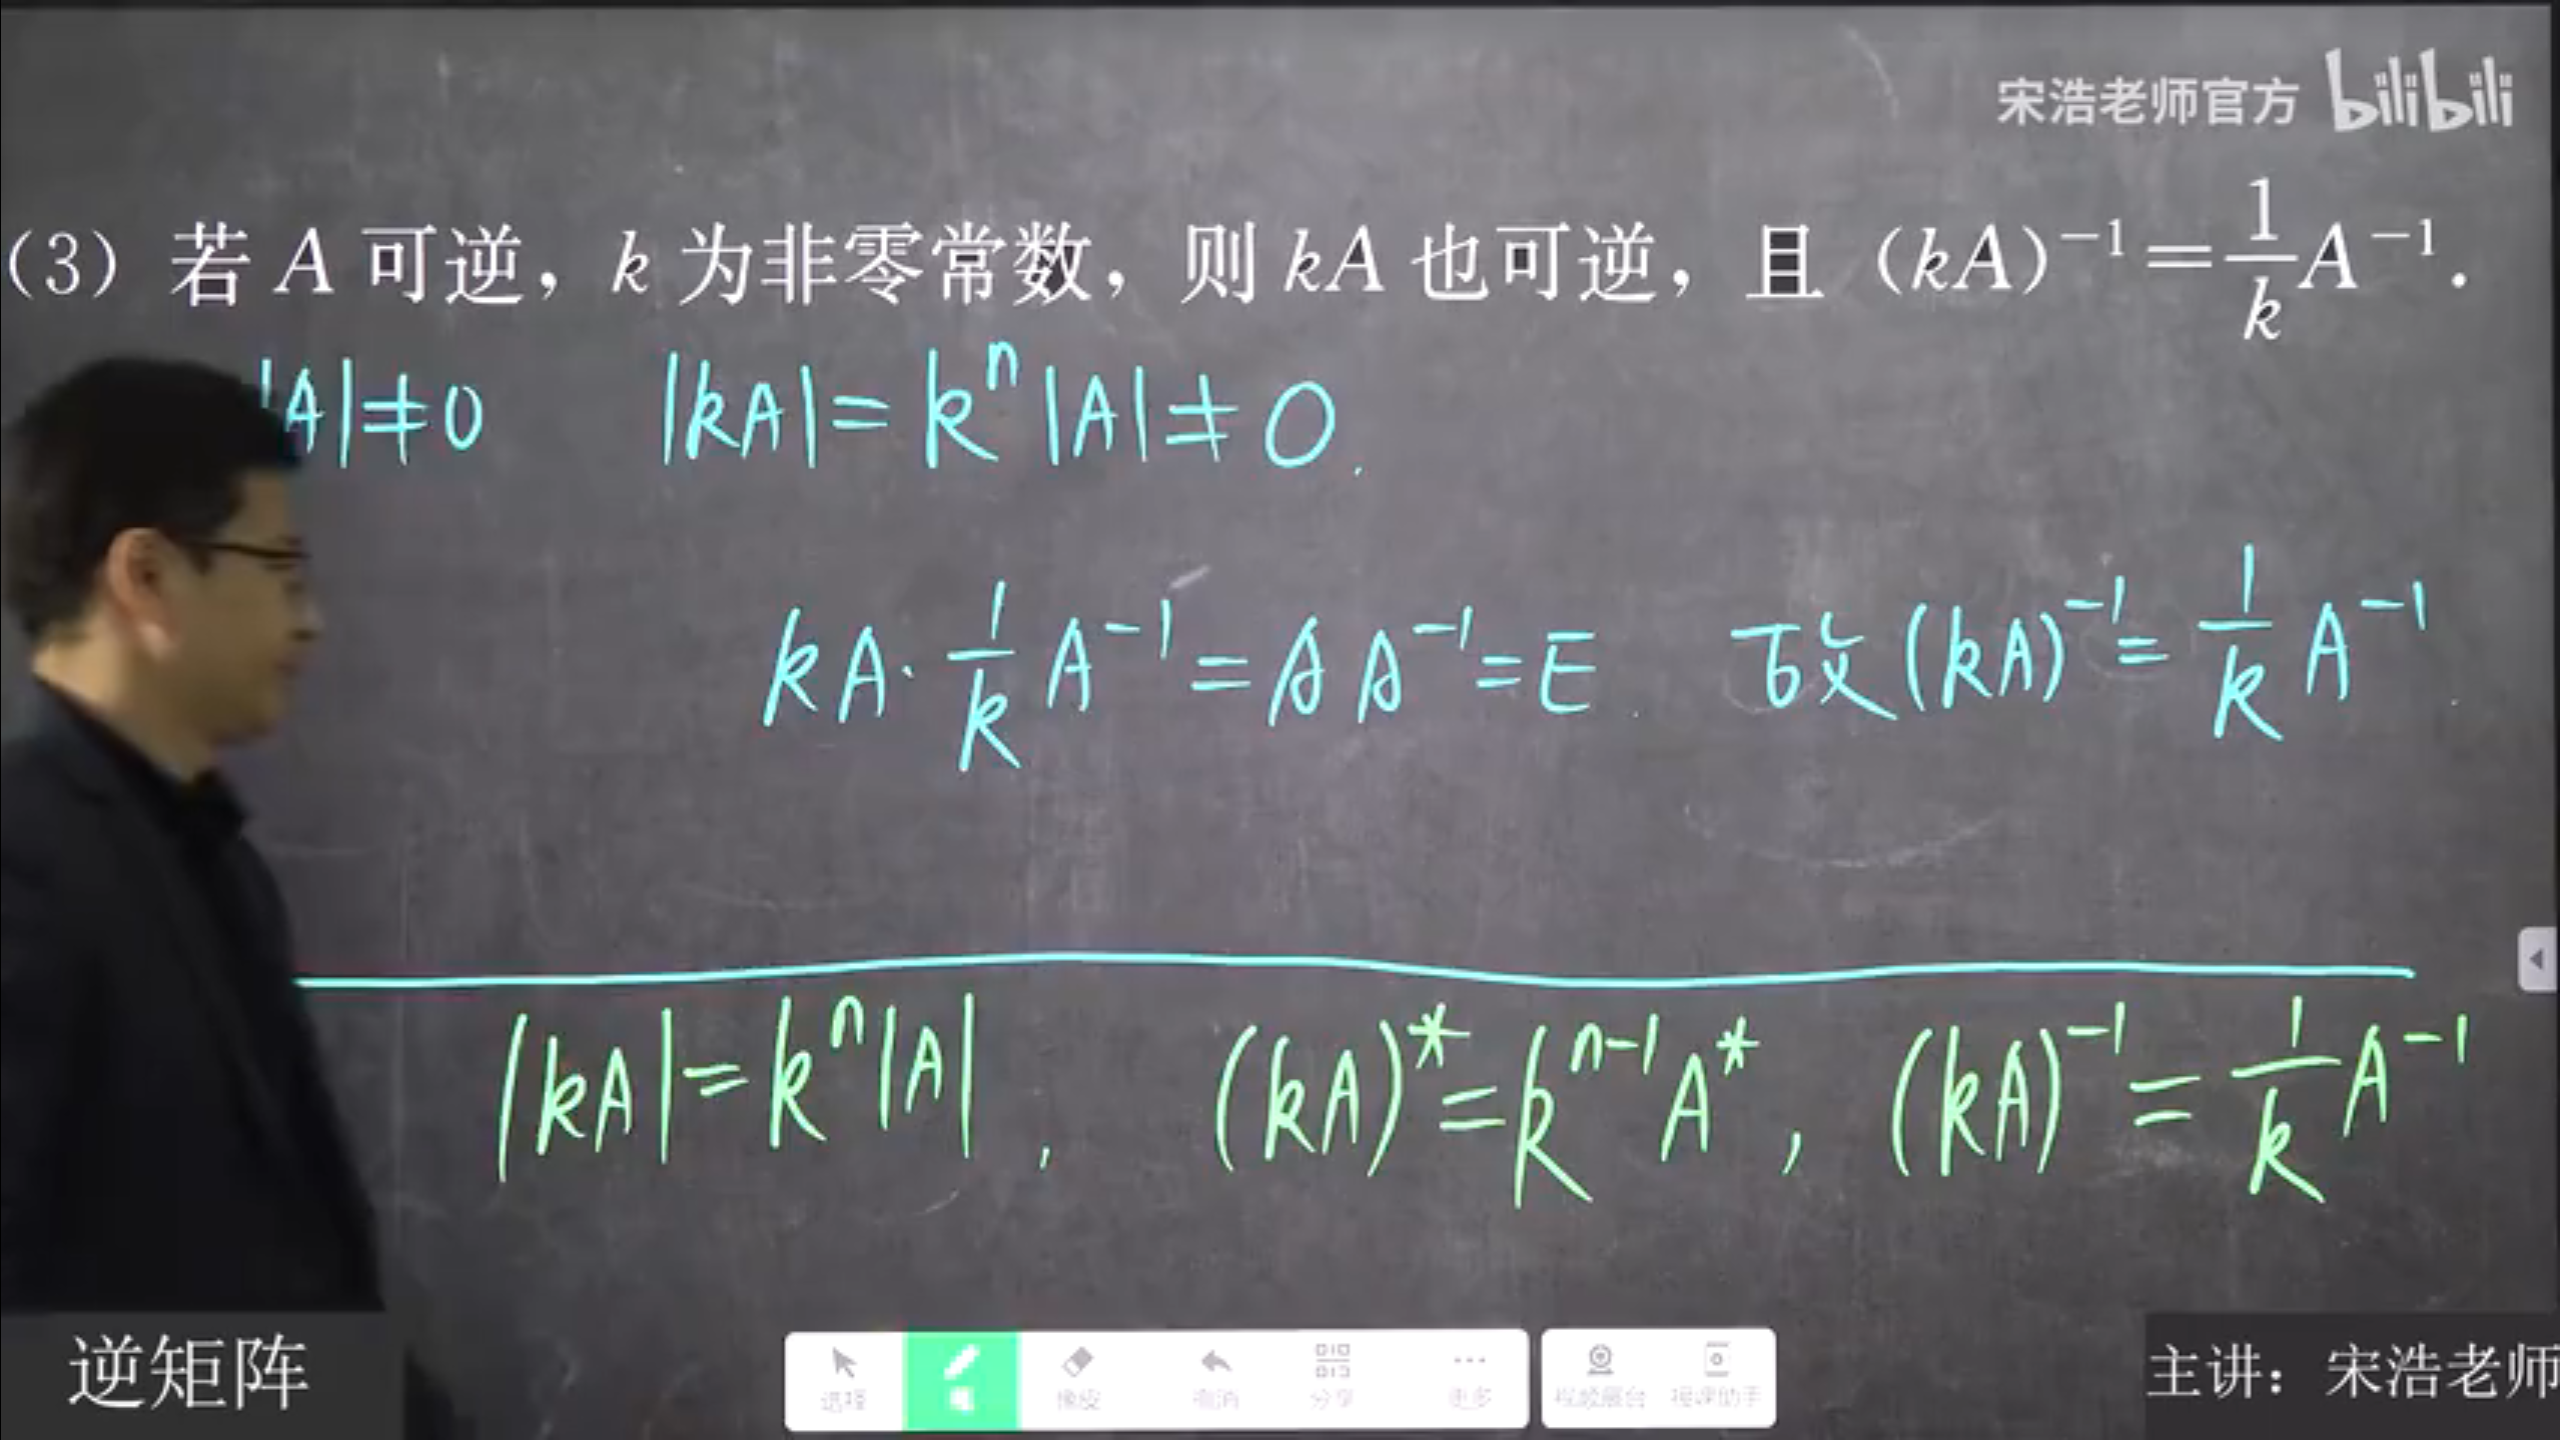 宋浩老师官方 bilibili
（3）若 A 可逆，k 为非零常数，则 kA 也可逆，且 (kA)⁻¹=1/k A⁻¹.
|A|≠0 |kA|=kⁿ|A|≠0.
kA·1/k A⁻¹=AA⁻¹=E. 故(kA)⁻¹=1/k A⁻¹.
|kA|=kⁿ|A|, (kA)*=kⁿ⁻¹A*, (kA)⁻¹=1/k A⁻¹
选择 橡皮 分享 更多 视频展台 授课助手
逆矩阵 主讲：宋浩老师